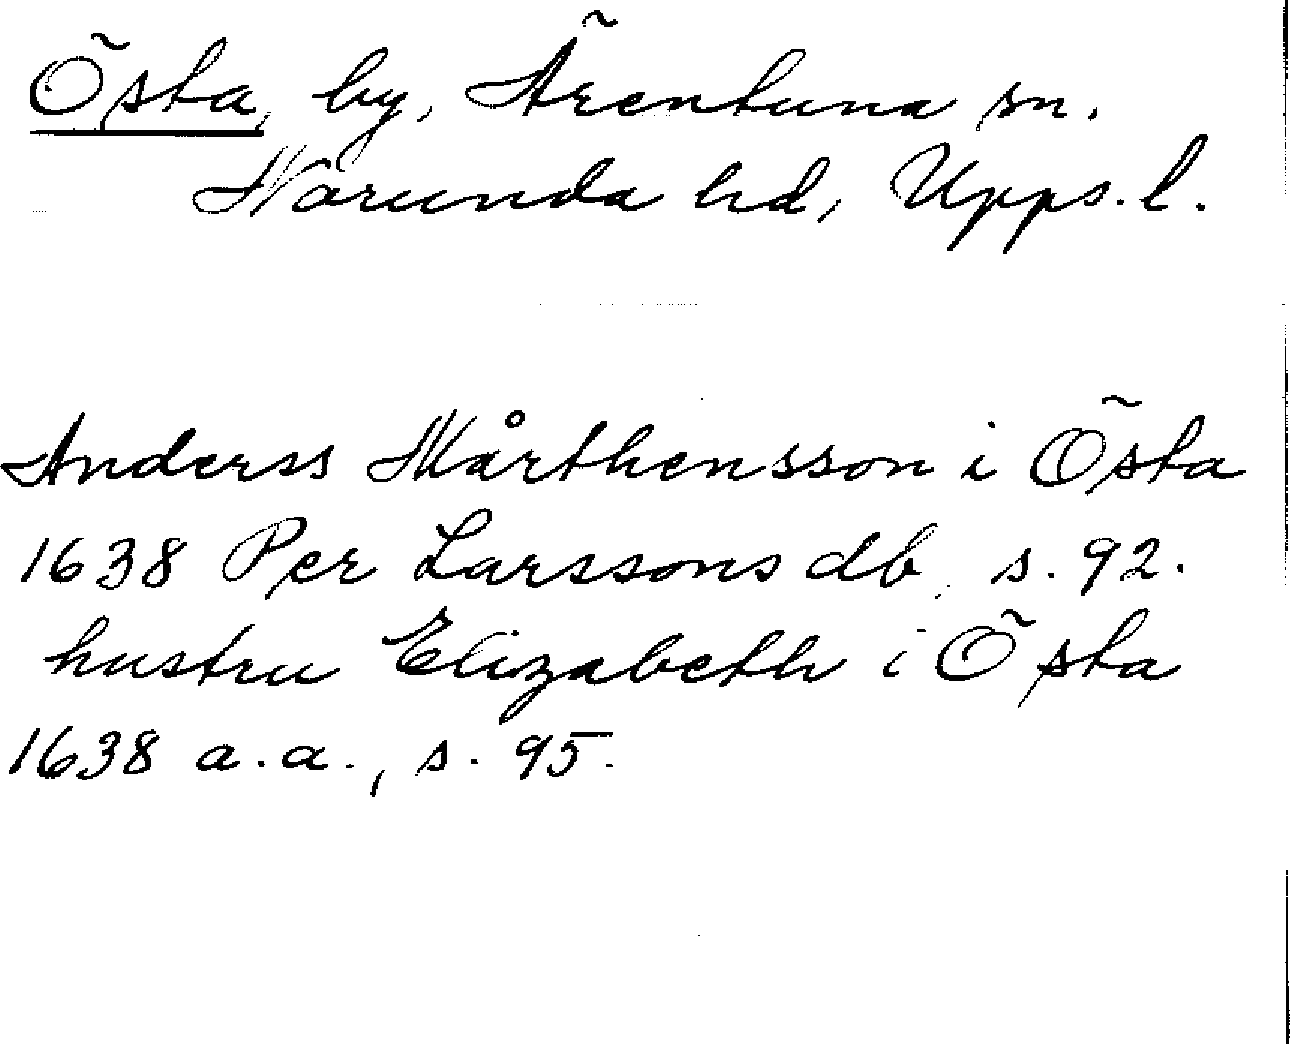 Östa, by, Ärentuna sn.
Norunda hd, Upps. l.
Anderss Mårthensson i Östa
1638 Per Larssons db. s. 92.
hustru Elizabeth i Östa
1638 a.a., s. 95.